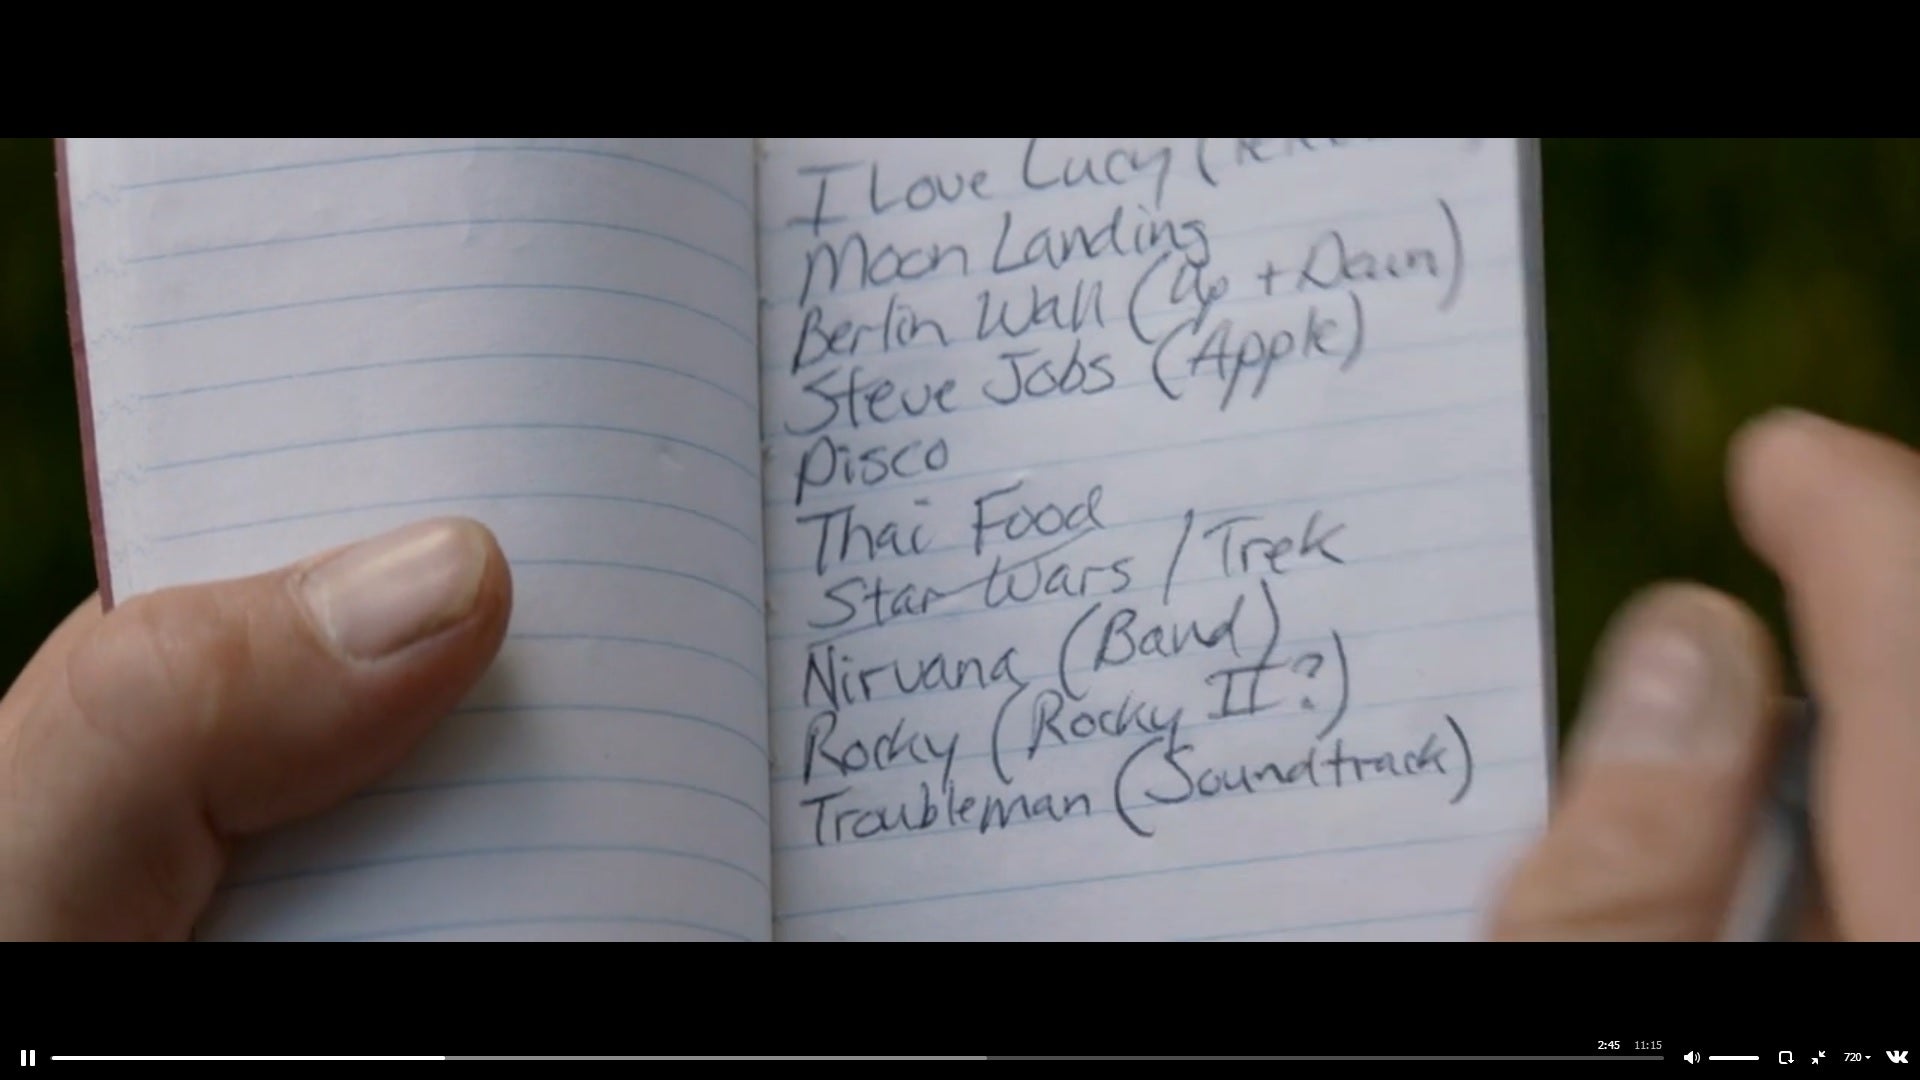 I Love Lucy (
Moon Landing
Berlin Wall (Up + Down)
Steve Jobs (Apple)
Disco
Thai Food
Star Wars / Trek
Nirvana (Band)
Rocky (Rocky II?)
Troubleman (Soundtrack)
2:45 11:15
720